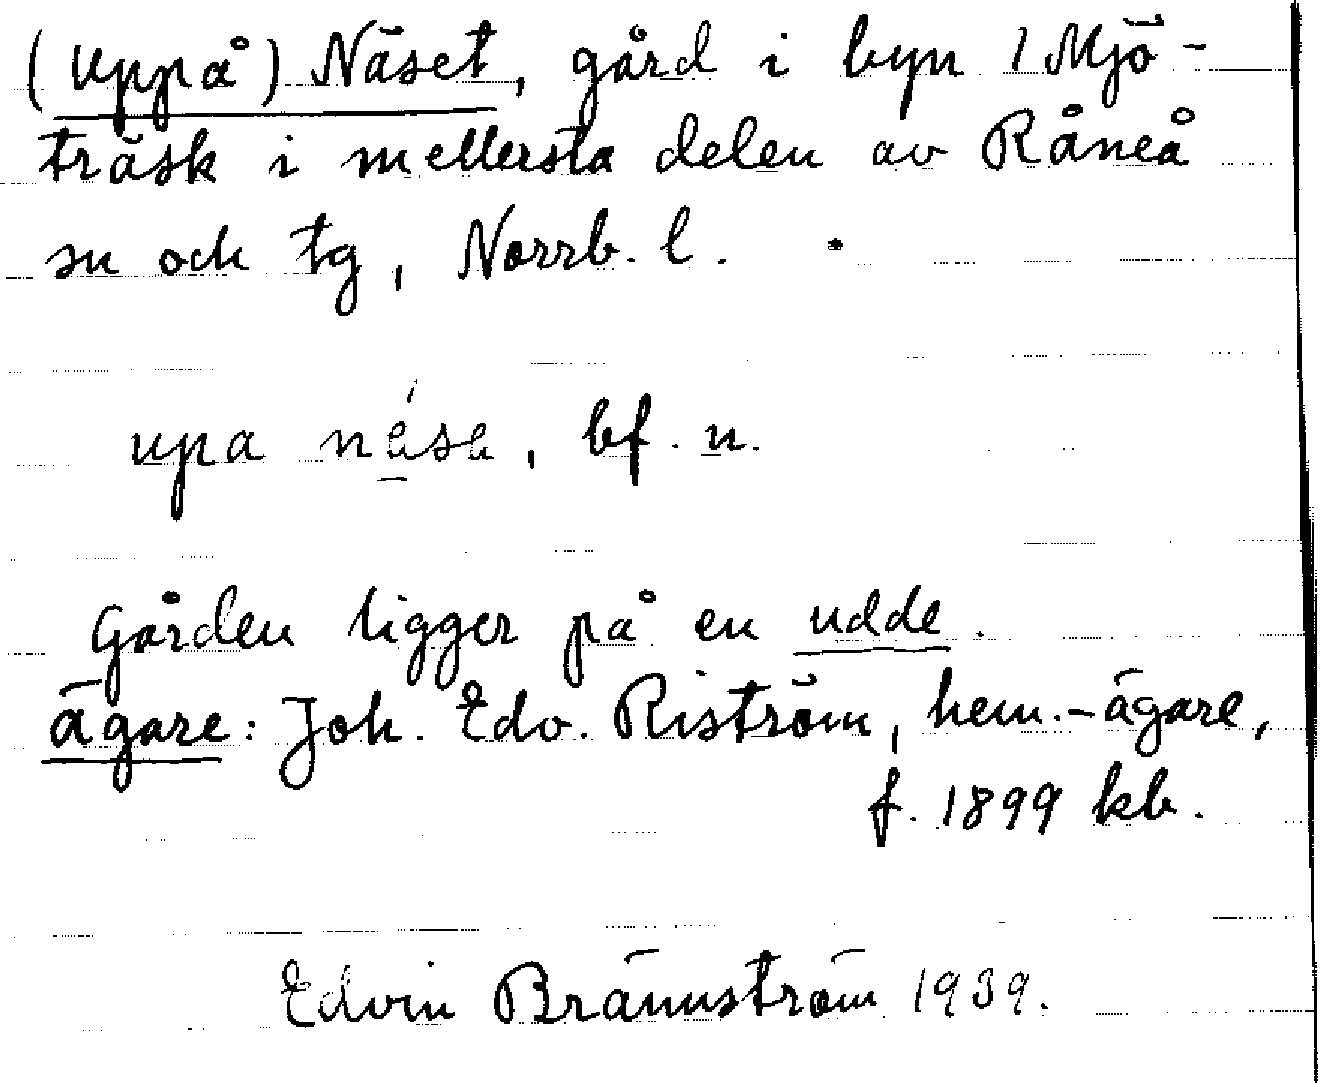 (Uppå) Näset, gård i byn 1 Mjö-
träsk i mellersta delen av Råneå
sn och tg, Norrb. l.
upa nésa, bf. n.
Gården ligger på en udde.
ägare: Joh. Edv. Riström, hem.-ägare,
f. 1899 kb.
Edvin Brännström 1939.